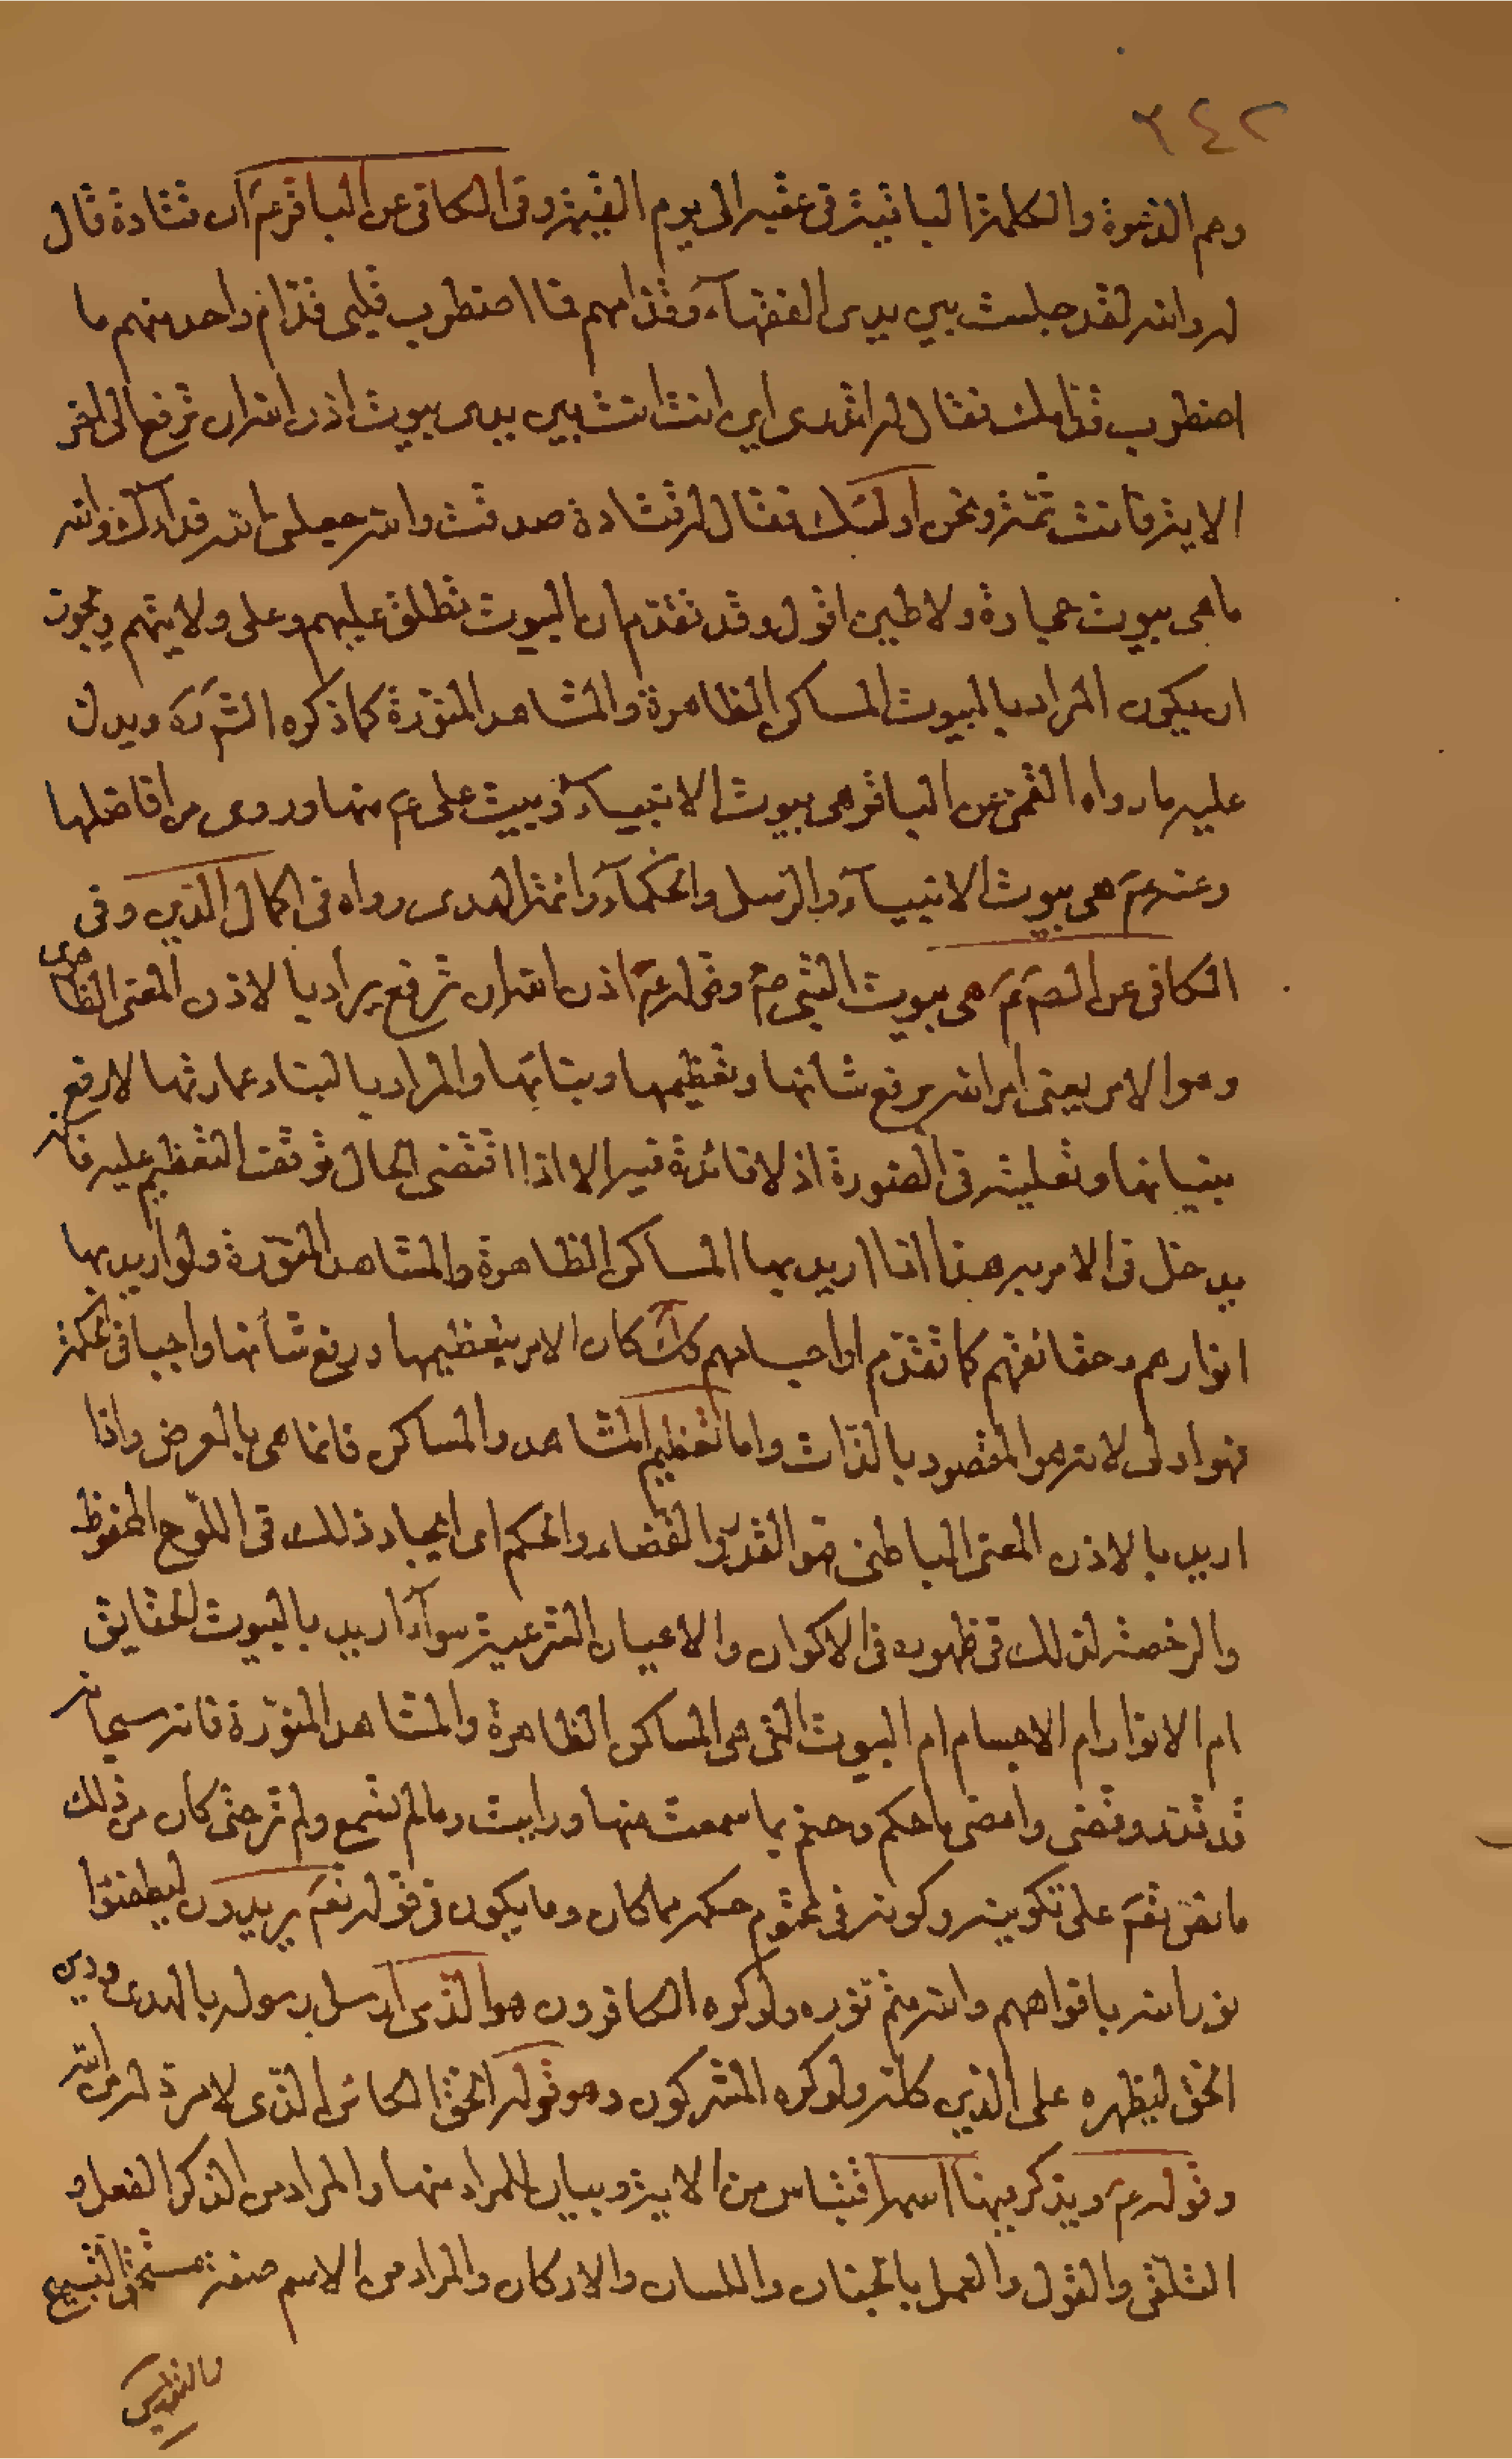 ٢٤٢
وهم الدعوة والكلمة الباقية في عقبه الى يوم القيمة وفي الكافي عن الباقر عم ان قتادة قال
له والله لقد جلست بين يدي الفقهآء وقدامهم فما اضطرب قلبي قدام واحد منهم ما
اضطرب قدامك فقال له اتدري اين انت انت بين يدي بيوت اذن الله ان ترفع الى اخر
الاية فانت ثمة ونحن اولئك فقال له قتادة صدقت والله جعلني الله فداك والله
ما هي بيوت حجارة ولا طين اقول وقد تقدم ان البيوت تطلق عليهم وعلى ولايتهم ويجوز
ان يكون المراد بالبيوت المساكن الظاهرة والمشاهد المنورة كما ذكره الش ره ويدل
عليه ما رواه القمي عن الباقر هي بيوت الانبيآء وبيت علي عم منها وروي من افاضلها
وعنه عم هي بيوت الانبيآء والرسل والحكمآء وائمة الهدى رواه في اكمال الدين وفي
الكافي عن الص عم هي بيوت النبي ص وقوله عم اذن الله ان ترفع يراد بالاذن المعنى الظاهري
وهو الامر يعني امر الله برفع شانها وتعظيمها وبنائها والمراد بالبناء عمارتها لا رفع
بنيانها وتعليته في الصورة اذ لا فائدة فيه الا اذا اقتضى الحال توقف التعظيم عليه فانه
يدخل في الامر به هذا اذا اريد بها المساكن الظاهرة والمشاهد المنورة ولو اريد بها
انوارهم وحقائقهم كما تقدم او اجسامهم كك كان الامر بتعظيمها ورفع شأنها واجبا في الحكمة
فهو اولى لانه هو المقصود بالذات واما تعظيم المشاهد والمساكن فانما هي بالعرض واذا
اريد بالاذن المعنى الباطني فهو القدر والقضاء والحكم اى ايجاد ذلك في اللوح المحفوظ
والرخصة لذلك في ظهوره في الاكوان والاعيان الشرعية سوآء اريد بالبيوت الحقايق
ام الانوار ام الاجسام ام البيوت التي هي المساكن الظاهرة والمشاهد المنورة فانه سبحانه
قد قدر وقضى وامضى ما حكم وحتم بما سمعت منها ورايت وما لم تسمع ولم تر حتى كان من ذلك
ما نص تعم على تكوينه وكونه في محتوم حكمه مما كان وما يكون في قوله تعم يريدون ليطفئوا
نور الله بافواههم والله متم نوره ولو كره الكافرون هو الذي ارسل رسوله بالهدى ودين
الحق ليظهره على الدين كله ولو كره المشركون وهو قوله الحق الكائن الذي لا مرد له من الله
وقوله عم ويذكر فيها اسمه اقتباس من الاية وبيان للمراد منها والمراد من الذكر الفعل و
التلقي والقول والعمل بالجنان واللسان والاركان والمراد من الاسم صفة مستحق التسبيح
والتقديس